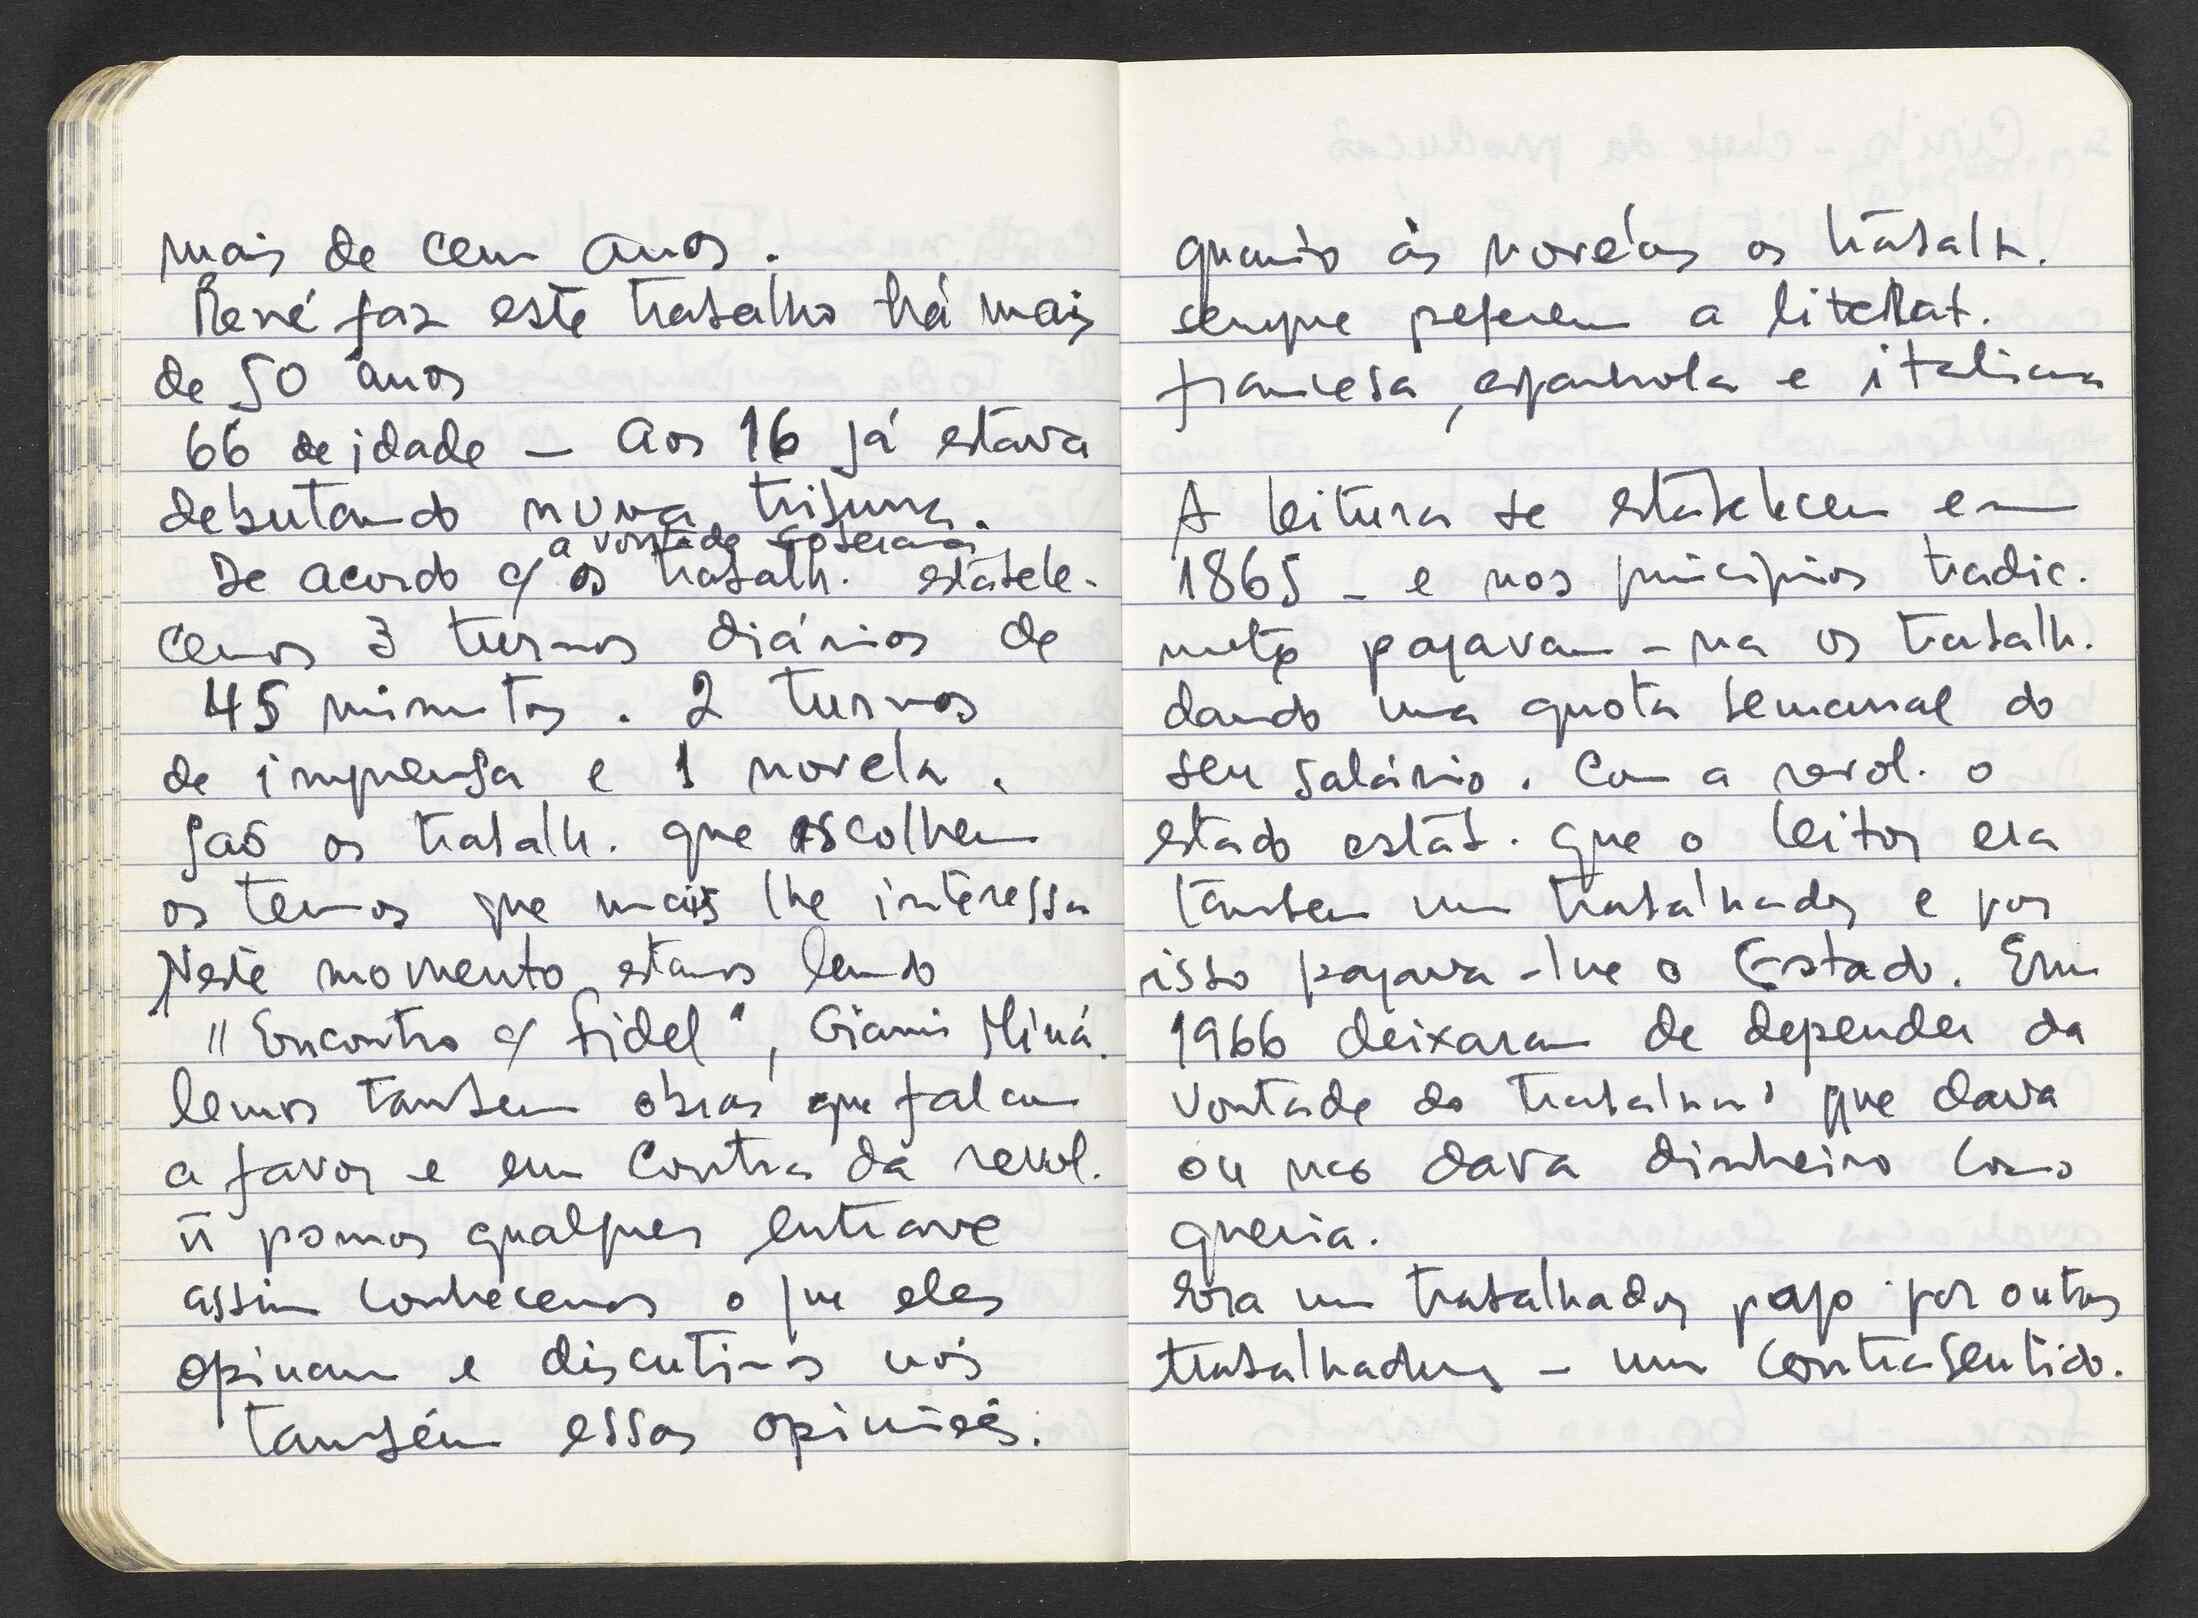 mais de cem anos.
René faz este trabalho há mais
de 50 anos
66 de idade – Aos 16 já estava
debutando numa tribuna.
a vontade soberana
De acordo c/ os trabalh. estabele-
cemos 3 turnos diários de
45 minutos. 2 turnos
de imprensa e 1 novela.
São os trabalh. que escolhem
os temas que mais lhe interessa
Neste momento estamos lendo
"Encontro c/ Fidel", Gianni Miná.
lemos tambem obras que falam
a favor e em contra da revol.
ñ pomos qualquer entrave
assim conhecemos o que eles
opinam e discutimos nós
também essas opiniões.
quanto às novelas os trabalh.
sempre preferem a literat.
francesa, espanhola e italiana
A leitura se estabeleceu em
1865 – e nos princípios tradic.
mente pagavam-na os trabalh.
dando uma quota semanal do
seu salário. Com a revol. o
estado estab. que o leitor era
tambem um trabalhador e por
isso pagava-lhe o Estado. Em
1966 deixaram de depender da
vontade do que dava
ou nao dava dinheiro como
queria.
Era um trabalhador pago por outros
trabalhadores – um contrasentido.